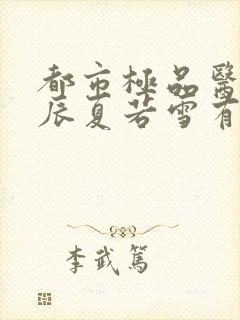 都市極品醫
辰夏若雪有
李武篤